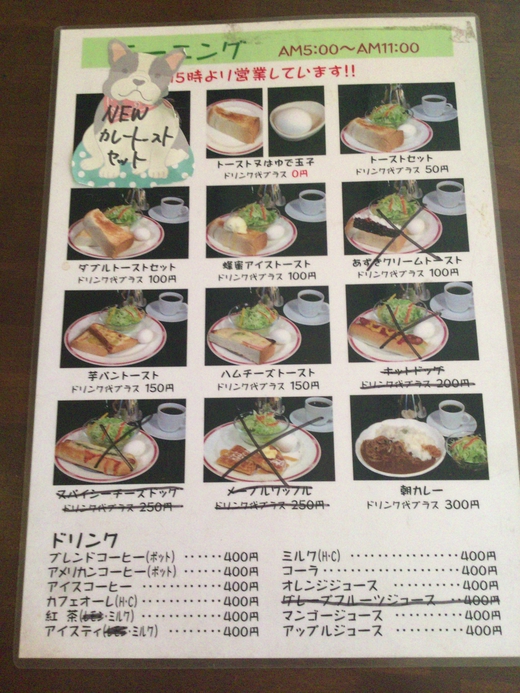 モーニング AM5:00～AM11:00
5時より営業しています!!
NEW
カレートースト
セット
トースト又はゆで玉子
ドリンク代プラス 0円
トーストセット
ドリンク代プラス 50円
ダブルトーストセット
ドリンク代プラス 100円
蜂蜜アイストースト
ドリンク代プラス 100円
あずきクリームトースト
ドリンク代プラス 100円
芋パントースト
ドリンク代プラス 150円
ハムチーズトースト
ドリンク代プラス 150円
ホットドッグ
ドリンク代プラス 200円
スパイシーチーズドッグ
ドリンク代プラス 250円
メープルワッフル
ドリンク代プラス 250円
朝カレー
ドリンク代プラス 300円
ドリンク
ブレンドコーヒー(ポット) ・・・・・・・ 400円
アメリカンコーヒー(ポット) ・・・・・・ 400円
アイスコーヒー ・・・・・・・・・・・ 400円
カフェオーレ(H・C) ・・・・・・・・・・ 400円
紅 茶(レモン・ミルク) ・・・・・・・・ 400円
アイスティ(レモン・ミルク) ・・・・・・ 400円
ミルク(H・C) ・・・・・・・・・・・・・ 400円
コーラ ・・・・・・・・・・・・・・・ 400円
オレンジジュース ・・・・・・・・・ 400円
グレープフルーツジュース ・・・・ 400円
マンゴージュース ・・・・・・・・・ 400円
アップルジュース ・・・・・・・・・ 400円